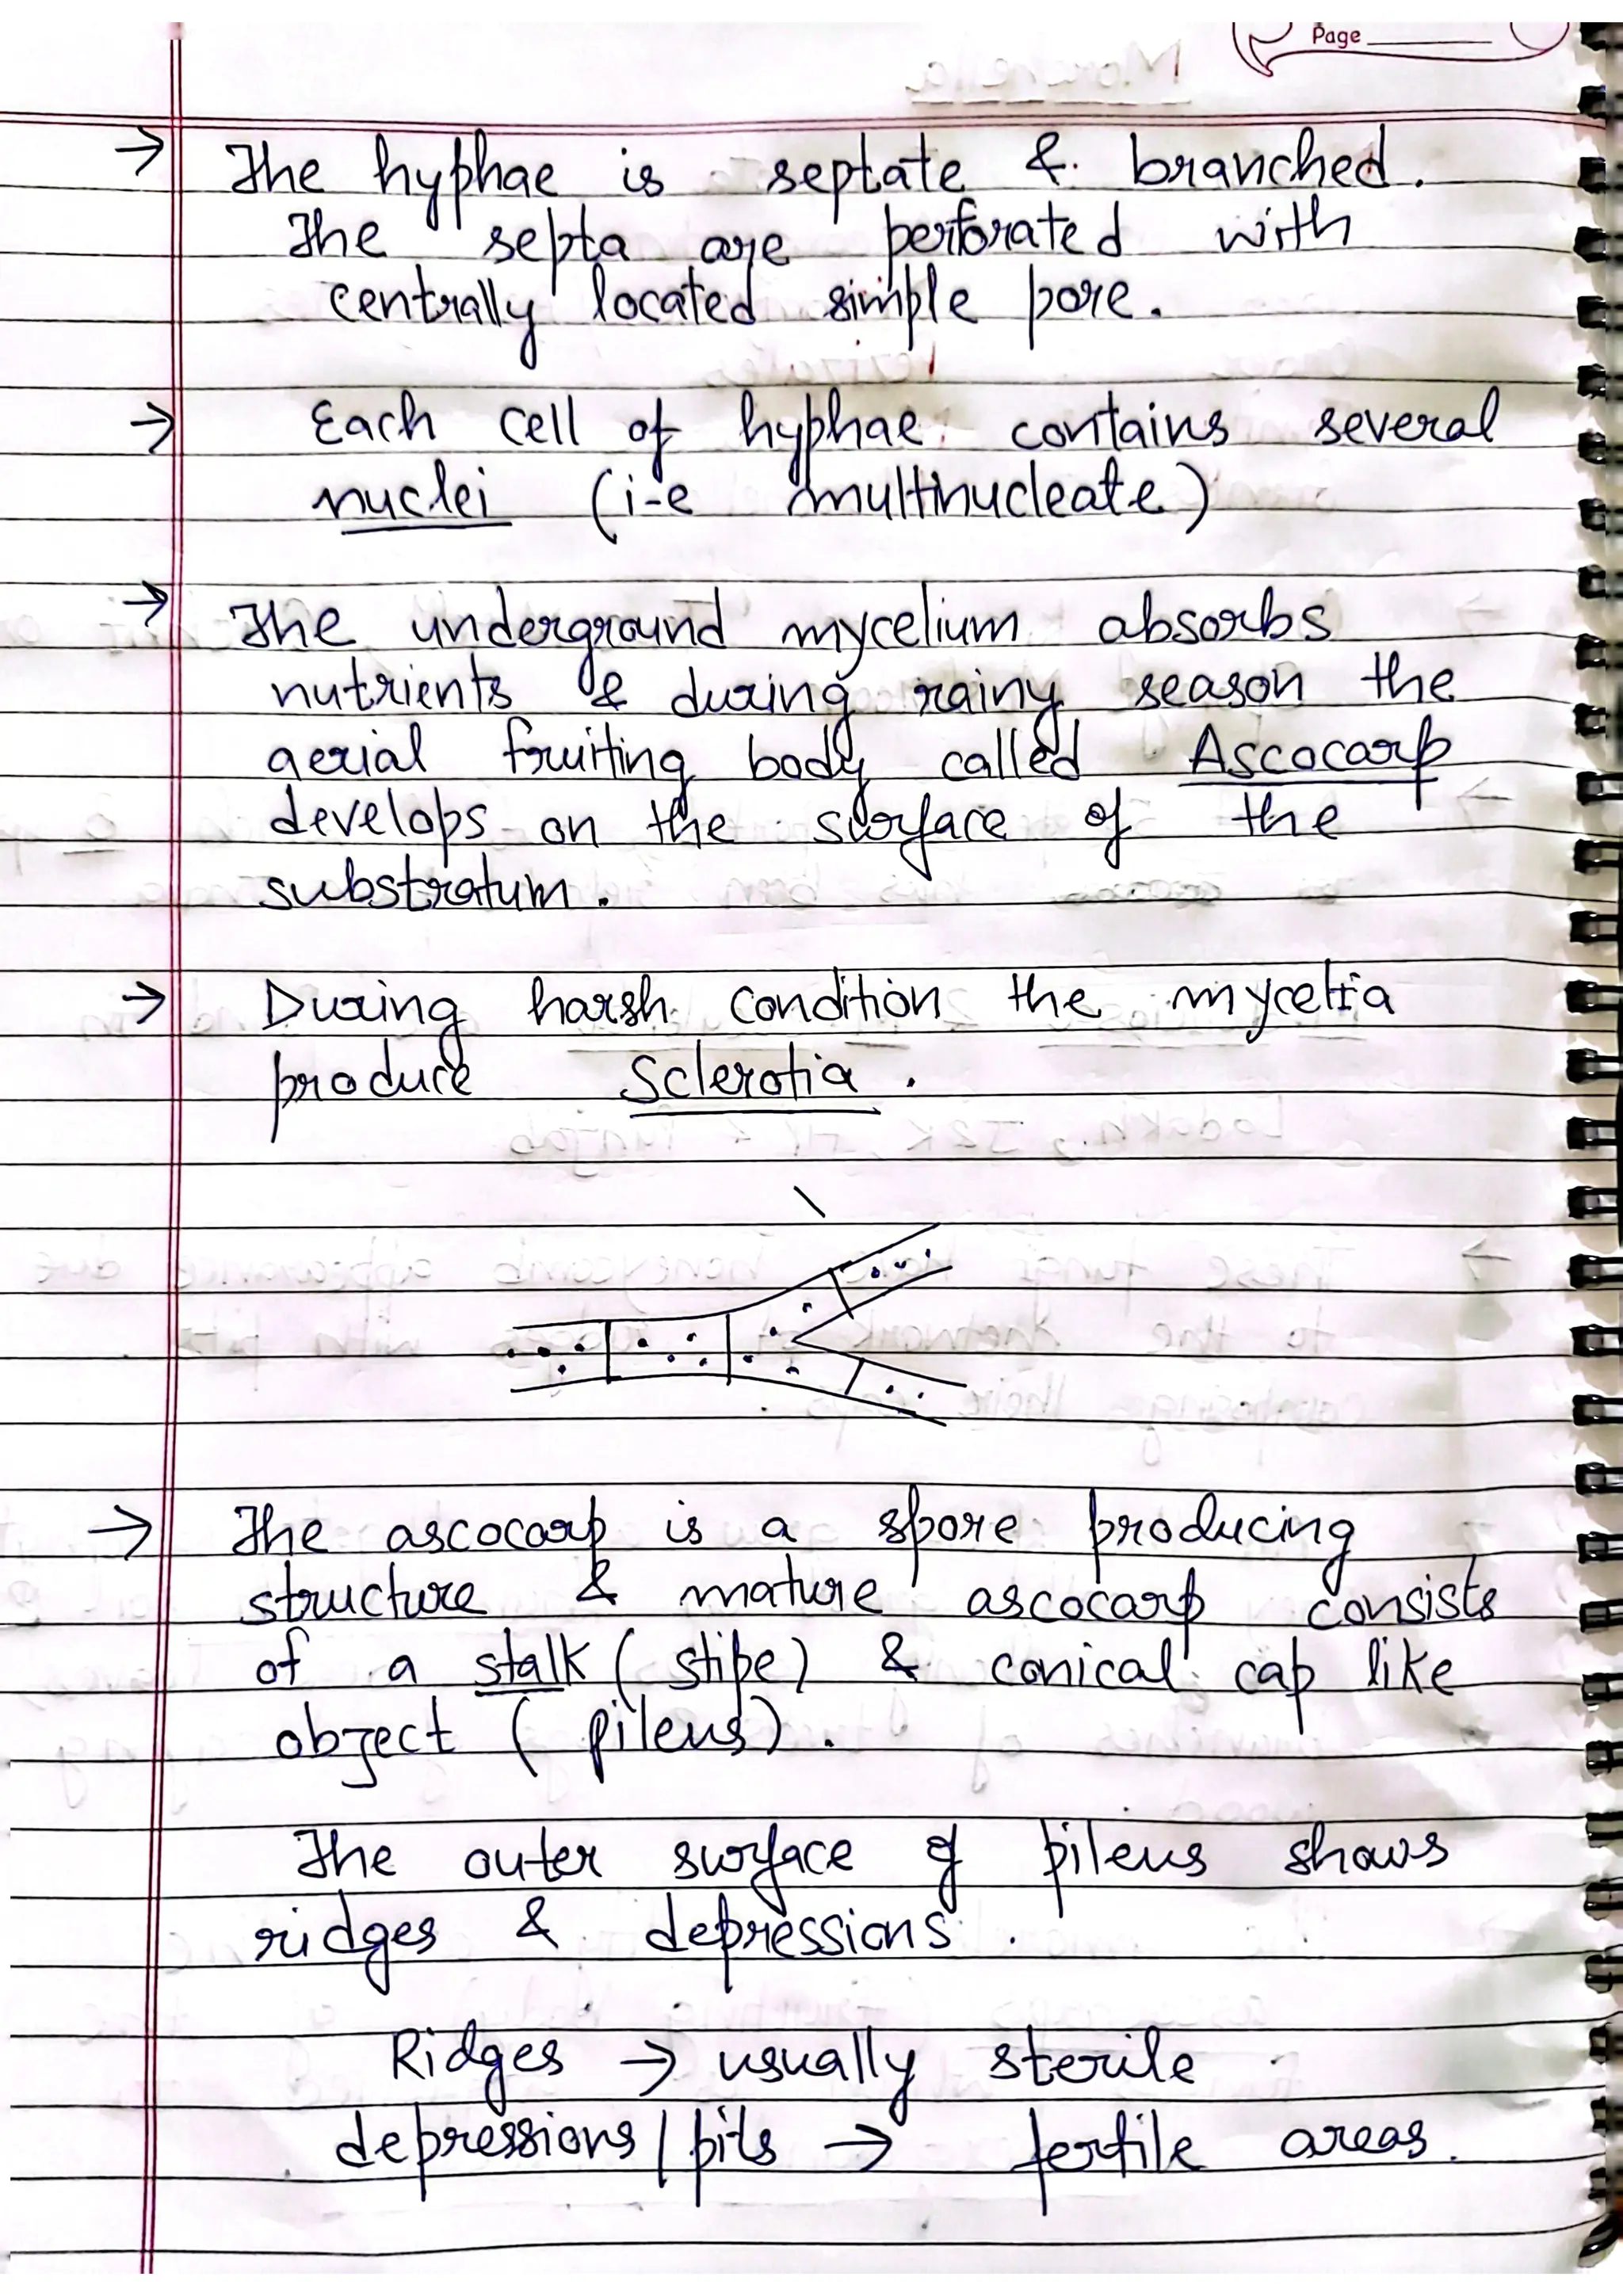 Page
→ The hyphae is septate & branched.
The septa are perforated with
centrally located simple pore.
→ Each cell of hyphae contains several
nuclei (i-e multinucleate)
→ The underground mycelium absorbs
nutrients & during rainy season the
aerial fruiting body called Ascocarp
develops on the surface of the
substratum.
→ During harsh condition the mycelia
produce Sclerotia.
→ The ascocarp is a spore producing
structure & mature ascocarp consists
of a stalk (stipe) & conical cap like
object (pileus).
The outer surface of pileus shows
ridges & depressions.
Ridges → usually sterile
depressions/pits → fertile areas.